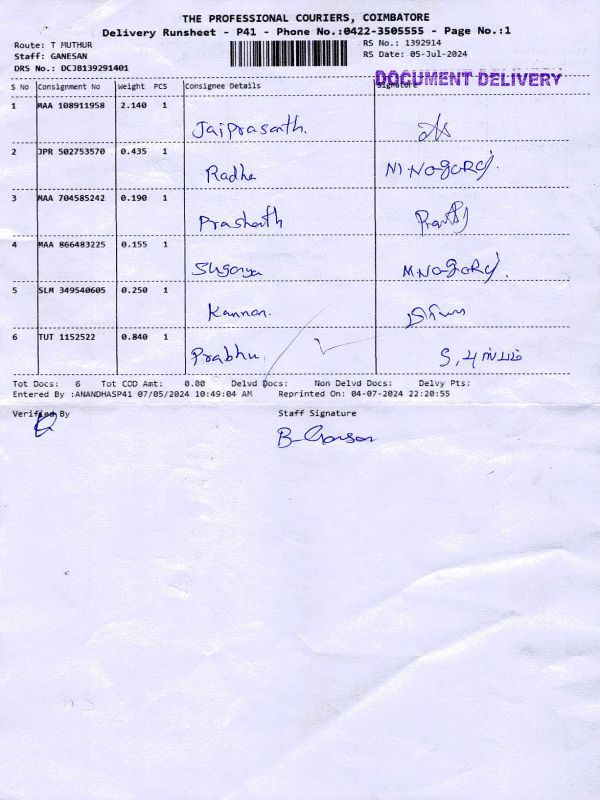 THE PROFESSIONAL COURIERS, COIMBATORE
Delivery Runsheet - P41 - Phone No.:0422-3505555 - Page No.:1
Route: T MUTHUR RS No.: 1392914
Staff: GANESAN RS Date: 05-Jul-2024
DRS No.: DCJB139291401
DOCUMENT DELIVERY
S No Consignment No Weight PCS Consignee Details Signature
1 MAA 108911958 2.140 1
Jaiprasanth.
2 JPR 502753570 0.435 1
Radha
3 MAA 704585242 0.190 1
Prashanth
4 MAA 866483225 0.155 1
M.NAGARAJ.
5 SLM 349540605 0.250 1
Kannan.
6 TUT 1152522 0.840 1
Prabhu.
Tot Docs: 6 Tot COD Amt: 0.00 Delvd Docs: Non Delvd Docs: Delvy Pts:
Entered By :ANANDHASP41 07/05/2024 10:49:04 AM Reprinted On: 04-07-2024 22:20:55
Verified By Staff Signature